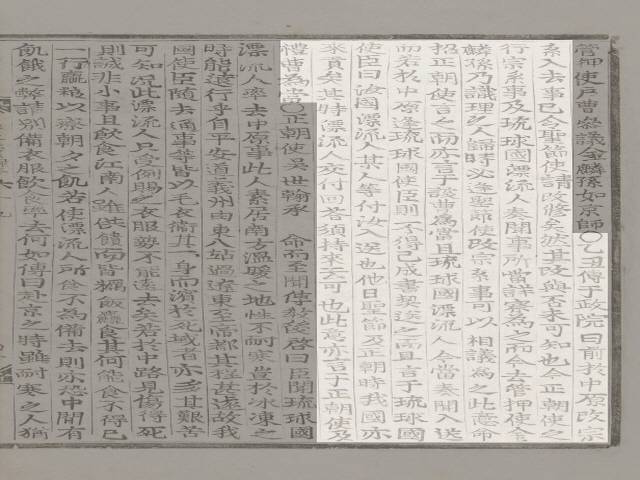 管押使戶曹參議金麟孫如京師○乙丑傳于政院曰前於中原改宗
系入去事已令聖節使請改修矣然其改與否未可知也今正朝使之
行宗系事及琉球國漂流人奏聞事所當詳察爲之而今去管押使金
麟孫乃識理之人歸時必逢聖節使改宗系事可以相議爲之此意命
招正朝使言之而亦言于該曹爲當且琉球國漂流人今當奏聞入送
而若於中原逢琉球國使臣則不得已成書契送之而且言于琉球國
使臣曰汝國漂流人其人等付汝入送也他日聖節及正朝時我國亦
來貢矣其時漂流人交付回答須持來云可也此意亦言于正朝使及
禮曹爲當○正朝使吳世翰承 命而至聞傳敎後啓曰臣聞琉球國
漂流人率去中原事此人素居南方溫暖之地性不耐寒豈於氷凍之
時能遠行乎自平安道義州由東八站過遼東至帝都其程甚遠故我
國使臣隨去通事等皆以毛衣衛其一身而濱於死域者亦多其艱苦
可知況此漂流人只受例賜之衣服勢不能遠去矣若於中路見傷得死
則誠非小事且飮食江南人雖供饋而皆糲飯麤食其何能食不得已
一行齎糧以療朝夕之飢若使漂流人所食不爲備去則亦恐中間有
飢餓之弊請別備衣服飮食率去何如傳曰赴京之時雖耐寒之人猶